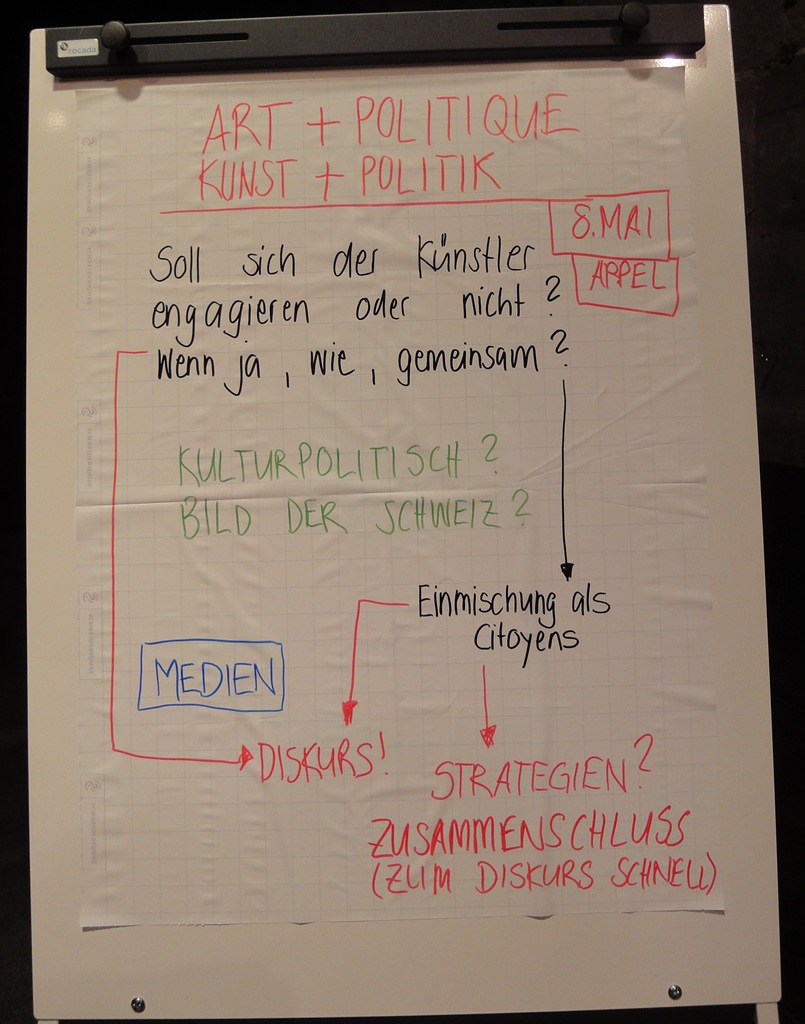 rocada
ART + POLITIQUE
KUNST + POLITIK
8. MAI
APPEL
Soll sich der Künstler
engagieren oder nicht?
Wenn ja, wie, gemeinsam?
KULTURPOLITISCH?
BILD DER SCHWEIZ?
Einmischung als
Citoyens
MEDIEN
DISKURS!
STRATEGIEN?
ZUSAMMENSCHLUSS
(ZUM DISKURS SCHNELL)